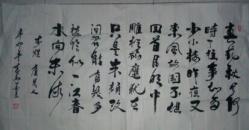 春花秋月何
时了往事知多
少小楼昨夜又
东风故国不堪
回首月明中
雕栏玉砌犹在
只是朱颜改
问君能有几多
愁恰似一江春
水向东流